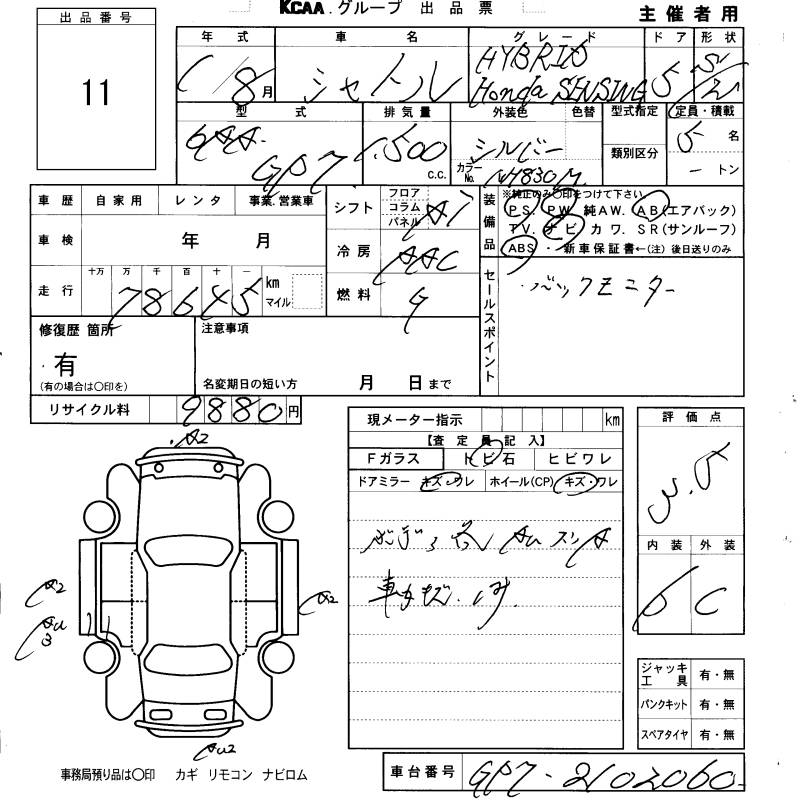 KCAA. グループ 出品票
主催者用
出品番号
11
年式 車名 グレード ドア 形状
1/8月 シャトル HYBRID Honda SENSING 5 S/Z
型式 排気量 外装色 色替 型式指定 定員・積載
GP7 1,500 c.c. シルバー カラーNo. NH830M 類別区分 5名 ートン
車歴 自家用 レンタ 事業.営業車
シフト フロア コラム パネル AT
車検 年 月
冷房 AAC
走行 十万 万 千 百 十 一 78645 km マイル
燃料 G
装備品 ※純正のみ〇印をつけて下さい
PS. PW. 純AW. AB(エアバック)
TV. ナビ カワ. SR(サンルーフ)
ABS ・ 新車保証書←(注) 後日送りのみ
セールスポイント
・バックモニター
修復歴 箇所
・有
(有の場合は〇印を)
注意事項
名変期日の短い方 月 日まで
リサイクル料 9880円
現メーター指示 km
【査定員記入】
Fガラス トビ石 ヒビワレ
ドアミラー キズ・ワレ ホイール(CP) キズ・ワレ
評価点
内装 外装
C
A2
A2
A2
ジャッキ工具 有・無
パンクキット 有・無
スペアタイヤ 有・無
事務局預り品は〇印 カギ リモコン ナビロム
車台番号 GP7-2102060